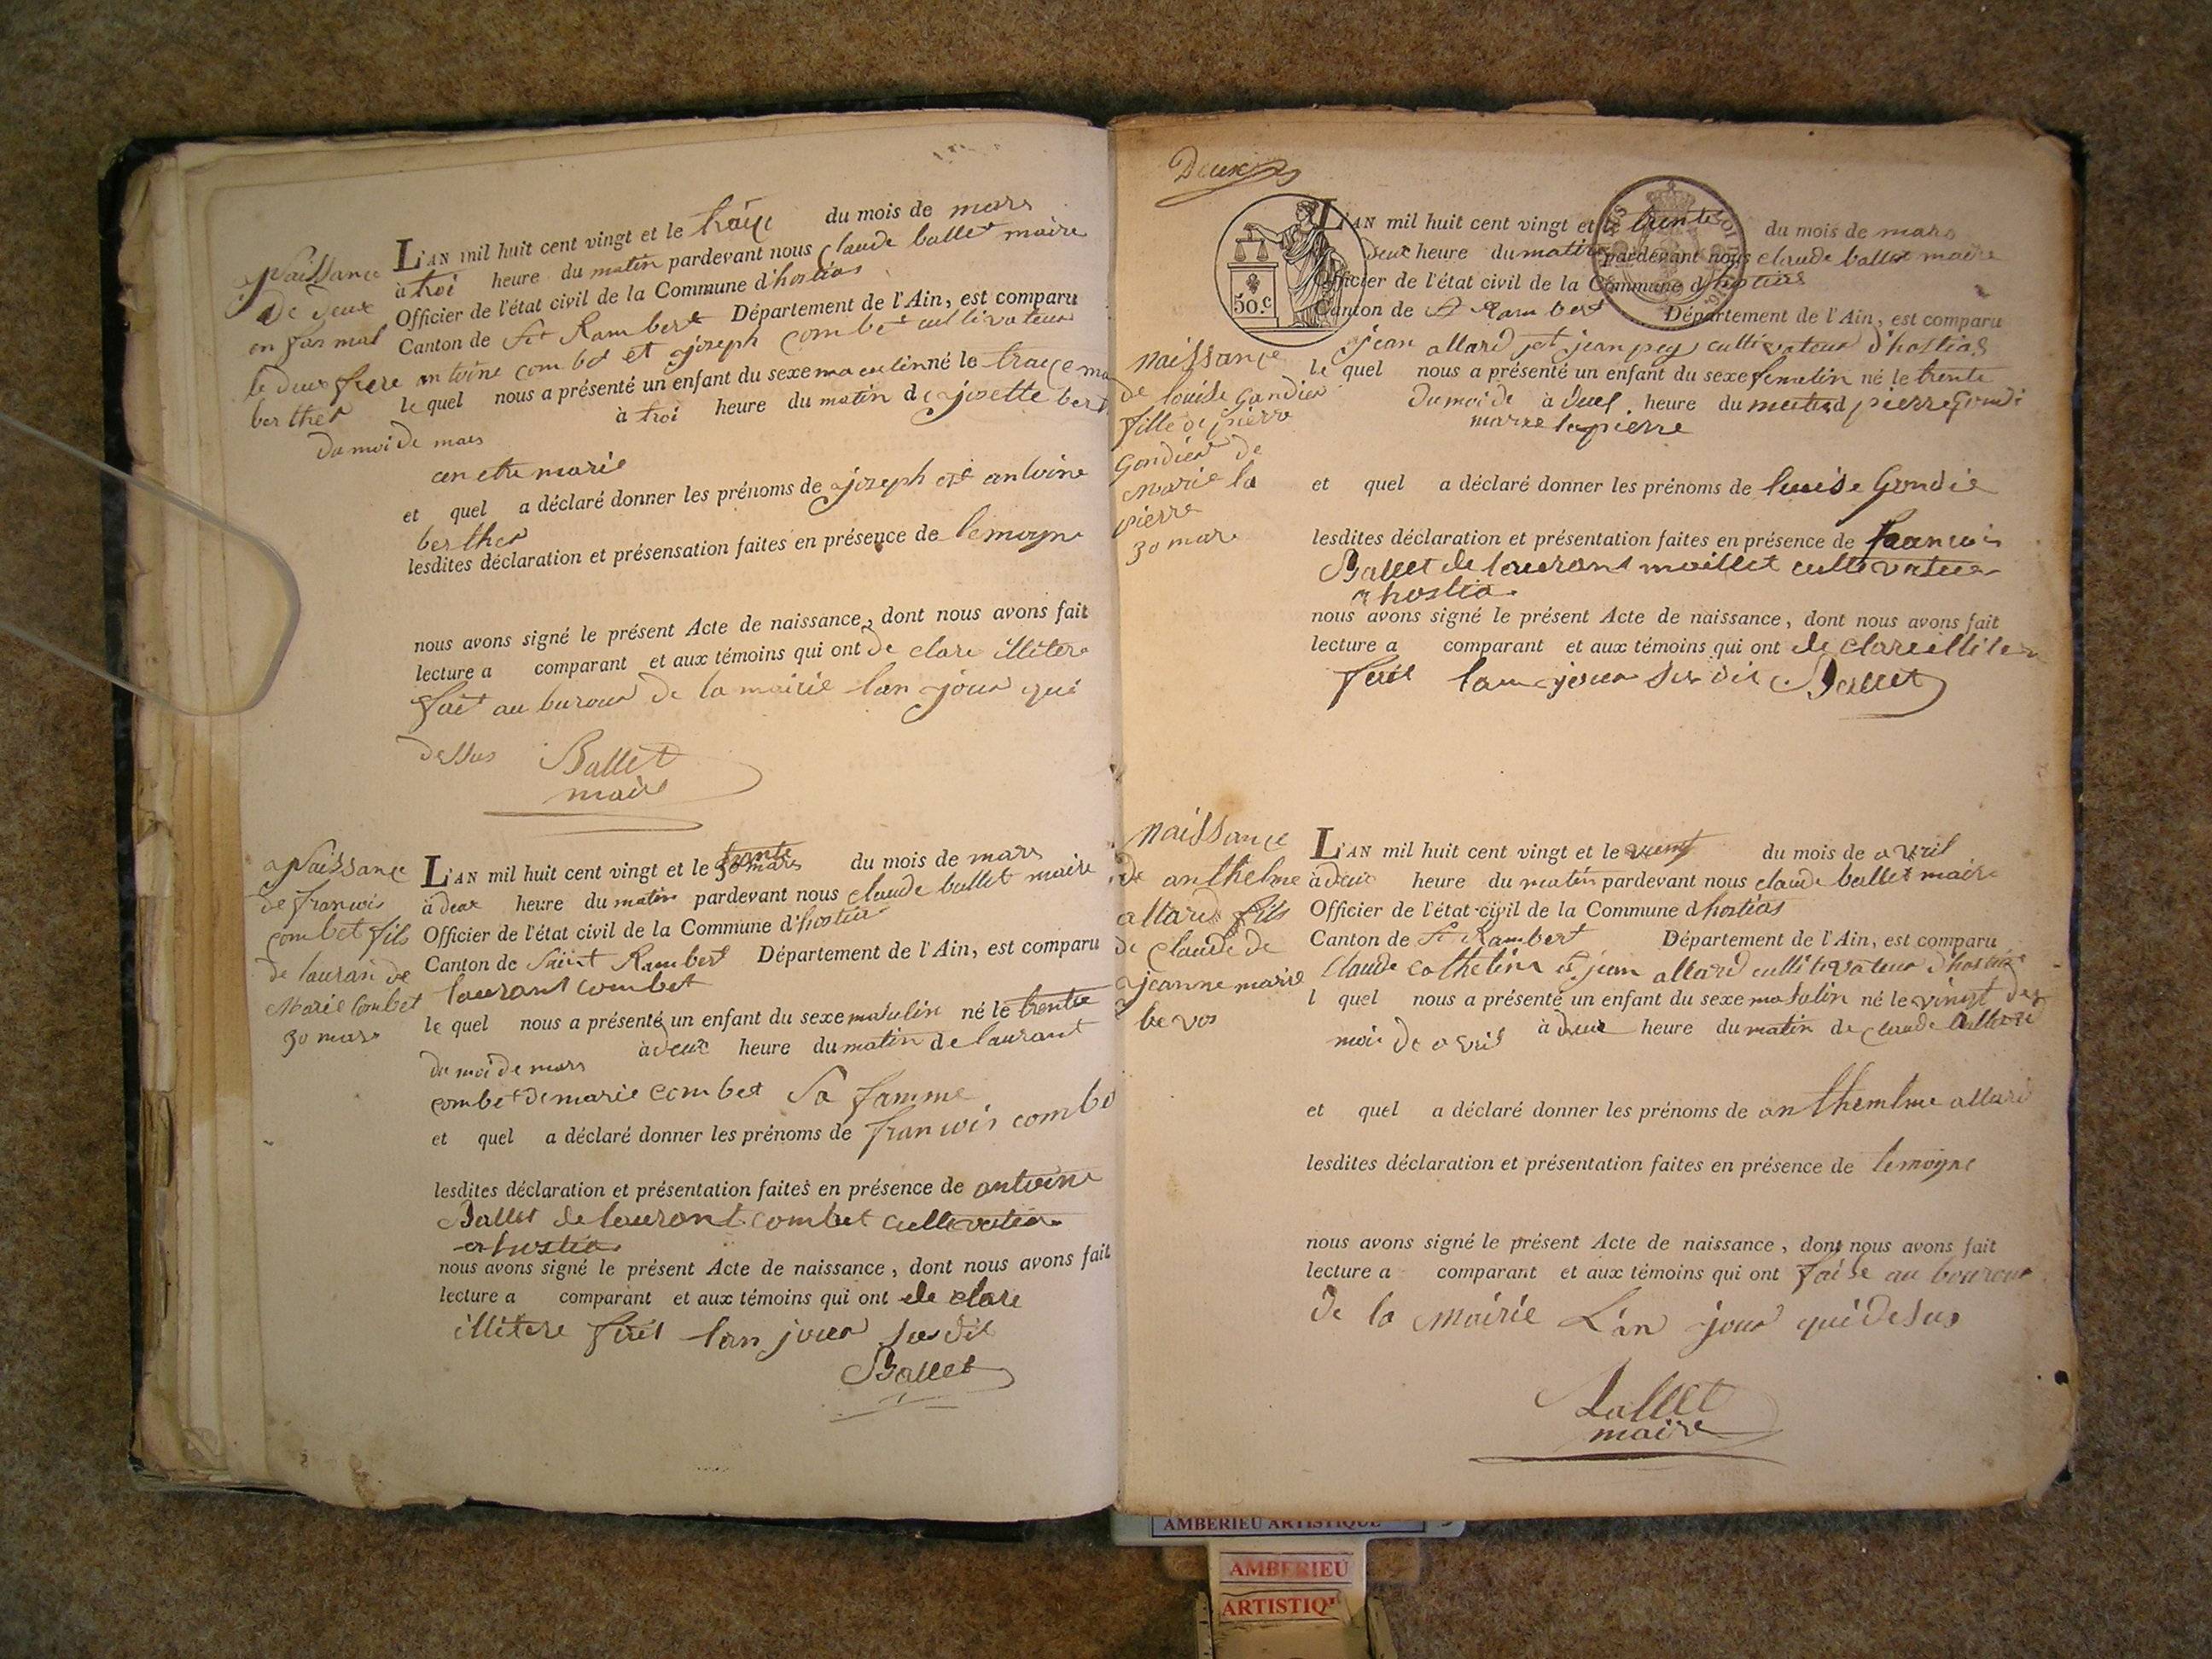 Naissance
de deux
en fan mal
le deux frere
berthet
L'AN mil huit cent vingt et le traiçe du mois de mars
à troi heure du matin pardevant nous claude ballet maire
Officier de l'état civil de la Commune d'hostias
Canton de St Rambert Département de l'Ain, est comparu
antoine combet et joseph combet cultivateur
le quel nous a présenté un enfant du sexe masculin né le traiçe
du moi de mars à troi heure du matin de josette
marie
et quel a déclaré donner les prénoms de joseph et antoine
berthet
lesdites déclaration et présensation faites en présence de lemoyne
nous avons signé le présent Acte de naissance, dont nous avons fait
lecture a comparant et aux témoins qui ont de clare illitere
fait au bureau de la mairie lan jour qui
dessus Ballet
maire
Naissance
de francois
combet fils
de lauran de
Marie Combet
30 mars
L'AN mil huit cent vingt et le trente 30 mars du mois de mars
à deux heure du matin pardevant nous claude ballet maire
Officier de l'état civil de la Commune d'hostias
Canton de Saint Rambert Département de l'Ain, est comparu
laurant combet
le quel nous a présenté un enfant du sexe masulin né le trentre
du moi de mars à deux heure du matin de laurant
combet de marie combet Sa famme
et quel a déclaré donner les prénoms de francois combe
lesdites déclaration et présentation faites en présence de antoine
Ballet de laurant combet
nous avons signé le présent Acte de naissance, dont nous avons fait
lecture a comparant et aux témoins qui ont de clare
illitere fait lan jour susdit
Ballet
Deux
50.c
naissance
de louise Gondier
fille de pierre
Gondier de
Marie la
pierre
30 mars
L'AN mil huit cent vingt et le trente du mois de mars
deux heure du matin pardevant nous claude ballet maire
Officier de l'état civil de la Commune d'hostias
Canton de St Rambert Département de l'Ain, est comparu
jean allard et jean pey cultivateur d'hostias
le quel nous a présenté un enfant du sexe femelin né le trente
du moi de à deux heure du matin d pierre Gondi
marie lapierre
et quel a déclaré donner les prénoms de luise Gondie
lesdites déclaration et présentation faites en présence de francois
Ballet de laurant maillet cultivateur
a hostia
nous avons signé le présent Acte de naissance, dont nous avons fait
lecture a comparant et aux témoins qui ont de clare illiter
fait lan jour sus dit Ballet
naissance
de anthelme
allard fils
de claude de
jeanne marie
be vos
L'AN mil huit cent vingt et le du mois de avril
à deux heure du matin pardevant nous claude ballet maire
Officier de l'état civil de la Commune d'hostias
Canton de St Rambert Département de l'Ain, est comparu
Claude cathelin et jean allard
l quel nous a présenté un enfant du sexe masulin né le vingt
moi de avril à deux heure du matin de claude allard
et quel a déclaré donner les prénoms de anthemlme allard
lesdites déclaration et présentation faites en présence de lemoyne
nous avons signé le présent Acte de naissance, dont nous avons fait
lecture a comparant et aux témoins qui ont faite au bourour
de la Mairie L'an jour qui desus
Ballet
maire
AMBERIEU ARTISTIQUE
AMBERIEU
ARTISTIQ